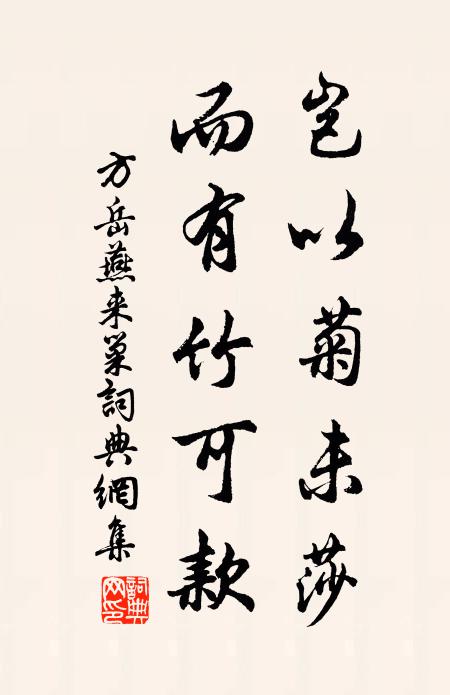 岂以菊未莎
而有竹可款
方岳燕来巢詞典網集
詞典网印